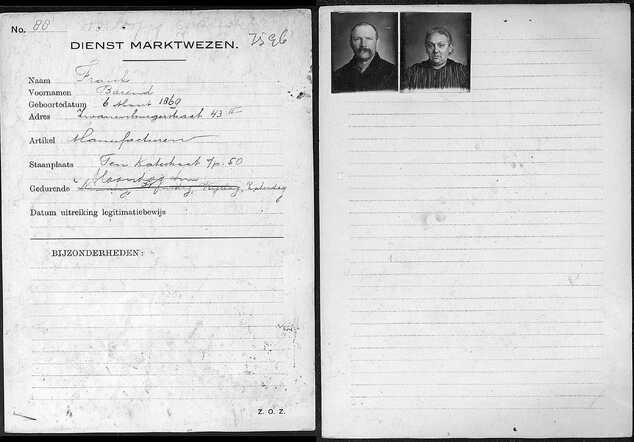 No. 88
DIENST MARKTWEZEN.
Naam Frank
Voornamen Barend
Geboortedatum 6 Maart 1860
Adres Zwanenburgerstraat 43 II
Artikel Manufacturen
Staanplaats Ten Katestraat t/p. 50
Maandag t/m
Gedurende Vrijdag, Zaterdag
Datum uitreiking legitimatiebewijs
BIJZONDERHEDEN:
Z. O. Z.